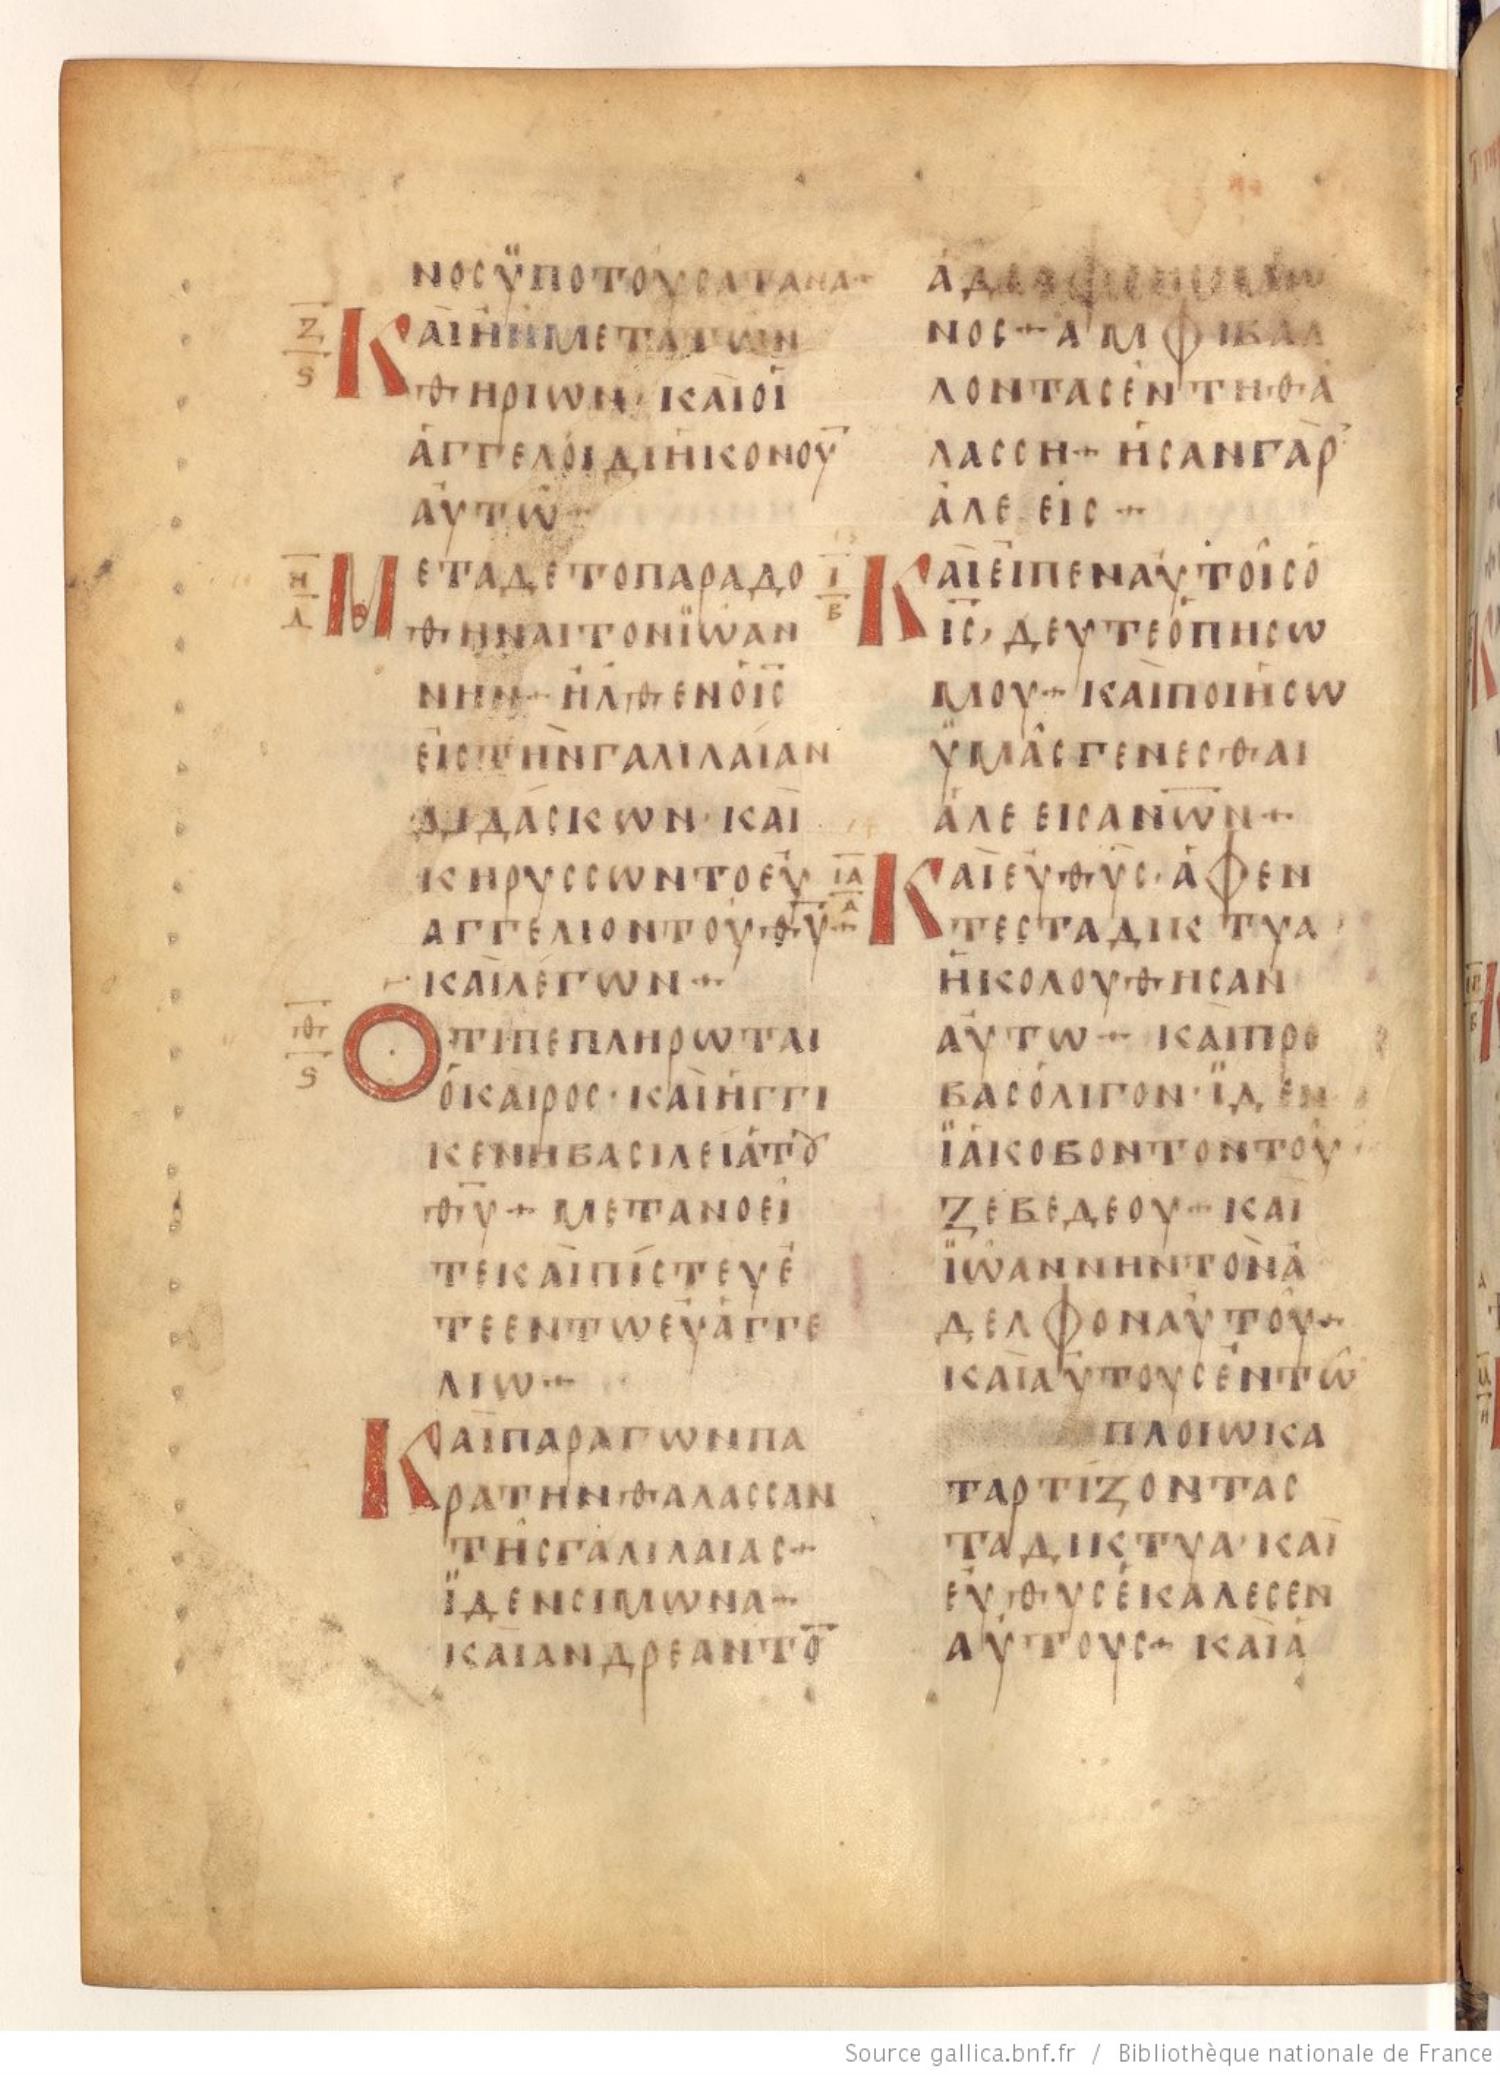 ΝΟCΫΠΟΤΟΥCΑΤΑΝΑ+
Ζ
Ϛ
ΚΑΙΗΝΜΕΤΑΤΩΝ
ΘΗΡΙΩΝ· ΚΑΙΟΙ
ΑΓΓΕΛΟΙΔΙΗΚΟΝΟΥ̅
ΑΥΤΩ+
Η
Δ
ΜΕΤΑΔΕΤΟΠΑΡΑΔΟ
ΘΗΝΑΙΤΟΝΪΩΑΝ
ΝΗΝ+ ΗΛΘΕΝΟΙ̅C̅
ΕΙCΤΗΝΓΑΛΙΛΑΙΑΝ
ΔΙΔΑCΚΩΝ· ΚΑΙ
ΚΗΡΥCCΩΝΤΟΕΥ
ΑΓΓΕΛΙΟΝΤΟΥΘ̅Υ̅+
ΚΑΙΛΕΓΩΝ+
Θ
Ϛ
ΟΤΙΠΕΠΛΗΡΩΤΑΙ
ΟΚΑΙΡΟC· ΚΑΙΗΓΓΙ
ΚΕΝΗΒΑCΙΛΕΙΑΤȢ
Θ̅Υ̅+ ΜΕΤΑΝΟΕΙ
ΤΕΚΑΙΠΙCΤΕΥΕ
ΤΕΕΝΤΩΕΥΑΓΓΕ
ΛΙΩ+
ΚΑΙΠΑΡΑΓΩΝΠΑ
ΡΑΤΗΝΘΑΛΑCCΑΝ
ΤΗCΓΑΛΙΛΑΙΑC+
ΪΔΕΝCΙΜΩΝΑ+
ΚΑΙΑΝΔΡΕΑΝΤΟ̅
ΝΟC+ ΑΜΦΙΒΑΛ
ΛΟΝΤΑCΕΝΤΗΘΑ
ΛΑCCΗ+ ΗCΑΝΓΑΡ
ΑΛΕΕΙC+
Ι
Β
ΚΑΙΕΙΠΕΝΑΥΤΟΙCΟ
Ι̅C̅, ΔΕΥΤΕΟΠΗCΩ
ΜΟΥ+ ΚΑΙΠΟΙΗCΩ
ΫΜΑCΓΕΝΕCΘΑΙ
ΑΛΕΕΙCΑΝ̅Ω̅Ν̅+
ΙΑ
Α
ΚΑΙΕΥΘΥC· ΑΦΕΝ
ΤΕCΤΑΔΙΚΤΥΑ
ΗΚΟΛΟΥΘΗCΑΝ
ΑΥΤΩ+ ΚΑΙΠΡΟ
ΒΑCΟΛΙΓΟΝ· ΪΔΕΝ
ΪΑΚΟΒΟΝΤΟΝΤΟΥ
ΖΕΒΕΔΕΟΥ+ ΚΑΙ
ΪΩΑΝΝΗΝΤΟΝΑ
ΔΕΛΦΟΝΑΥΤΟΥ+
ΚΑΙΑΥΤΟΥCΕΝΤΩ
ΠΛΟΙΩΚΑ
ΤΑΡΤΙΖΟΝΤΑC
ΤΑΔΙΚΤΥΑ· ΚΑΙ
ΕΥΘΥCΕΚΑΛΕCΕΝ
ΑΥΤΟΥC+ ΚΑΙΑ
Source gallica.bnf.fr / Bibliothèque nationale de France